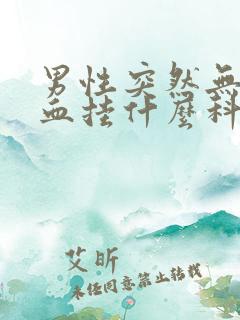 男性突然無
血挂什麼科
艾昕
未经同意禁止转载